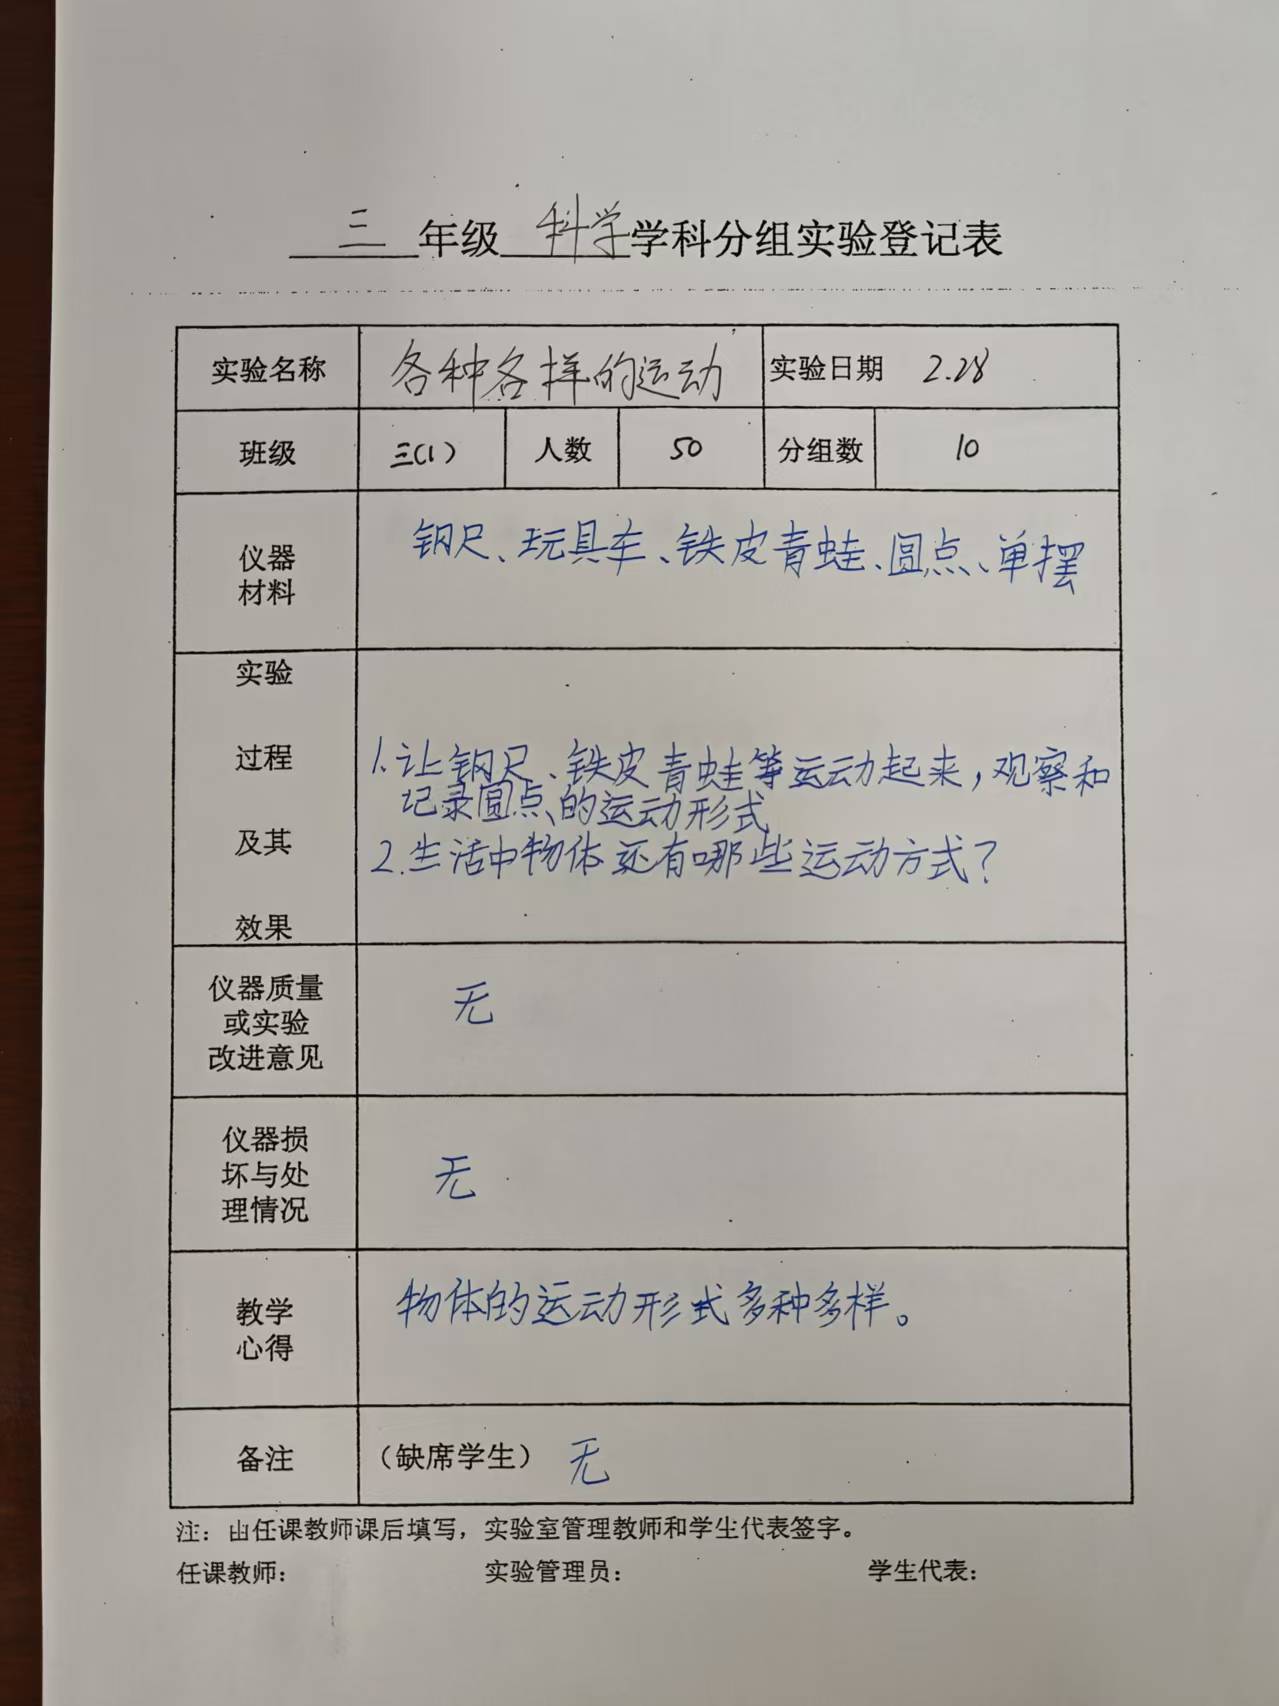 三 年级 科学 学科分组实验登记表
实验名称 各种各样的运动 实验日期 2.28
班级 三(1) 人数 50 分组数 10
仪器
材料
钢尺、玩具车、铁皮青蛙、圆点、单摆
实验
过程
及其
效果
1.让钢尺、铁皮青蛙等运动起来,观察和
记录圆点的运动形式
2.生活中物体还有哪些运动方式?
仪器质量
或实验
改进意见
无
仪器损
坏与处
理情况
无
教学
心得
物体的运动形式多种多样。
备注 (缺席学生) 无
注:由任课教师课后填写,实验室管理教师和学生代表签字。
任课教师: 实验管理员: 学生代表: